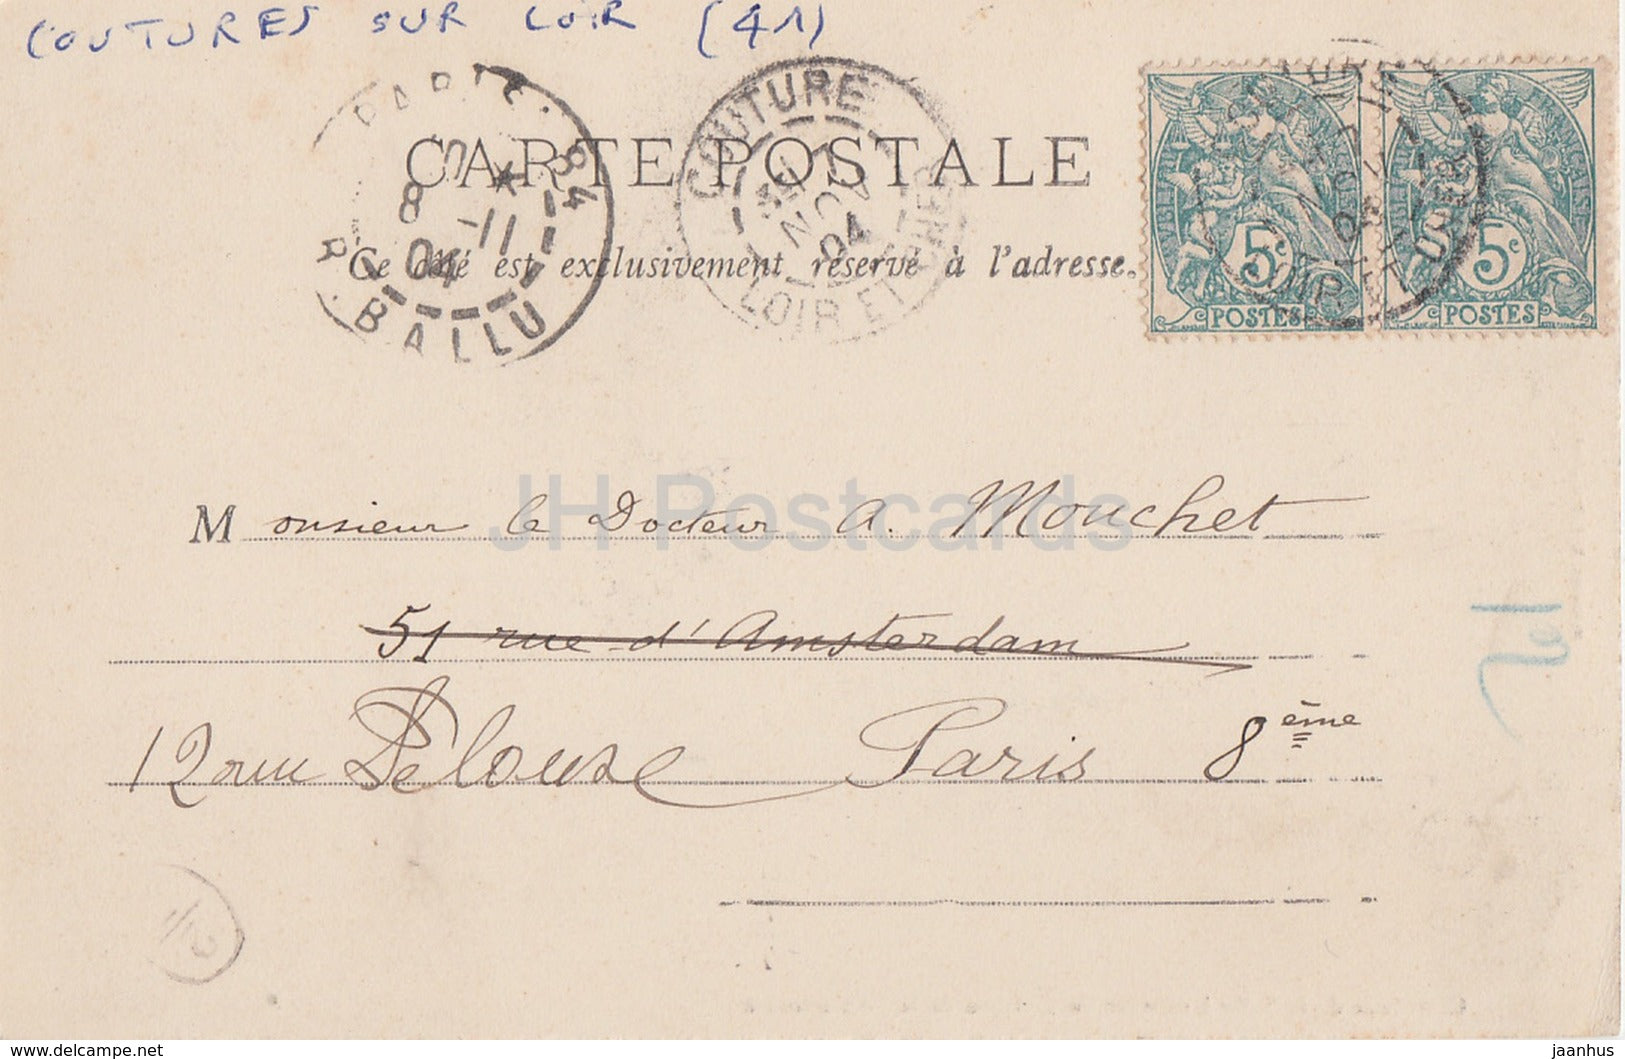 COUTURES SUR LOIR (41)
PARIS. 84
8 -11
04
R. BALLU
COUTURE
7
NOV
04
LOIR ET CHER
CARTE POSTALE
Ce côté est exclusivement réservé à l'adresse.
5c POSTES
5c POSTES
JH Postcards
Monsieur le Docteur A. Mouchet
51 rue d'Amsterdam
12 rue Pelouze Paris 8ème
www.delcampe.net
jaanhus